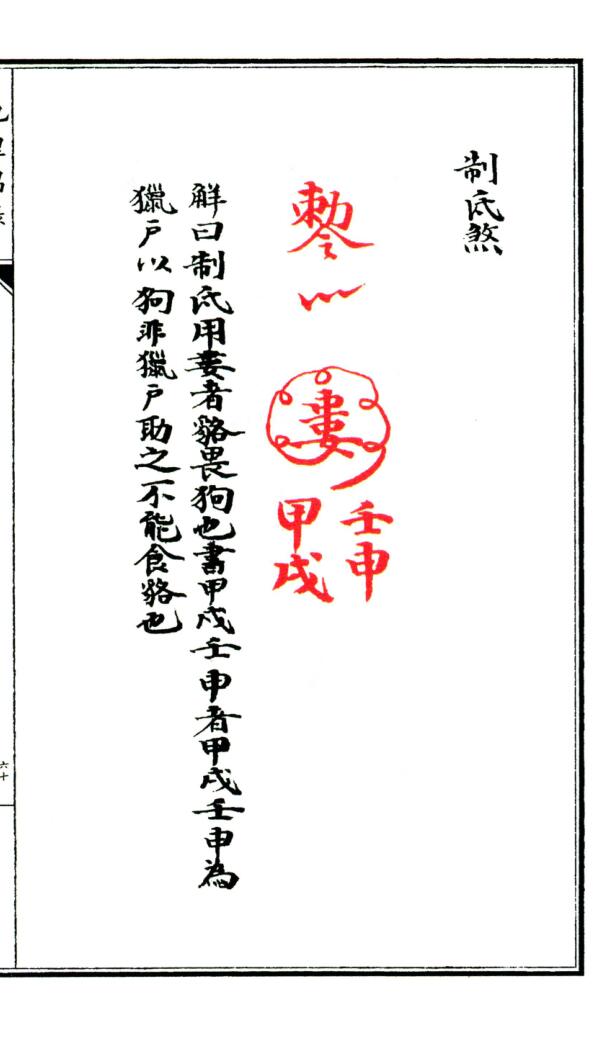 制氐煞
勅令
婁
壬申
甲戌
觧曰制氐用婁者貉畏狗也書甲戌壬申者甲戌壬申為
獵戶以狗非獵戶助之不能食貉也
六十